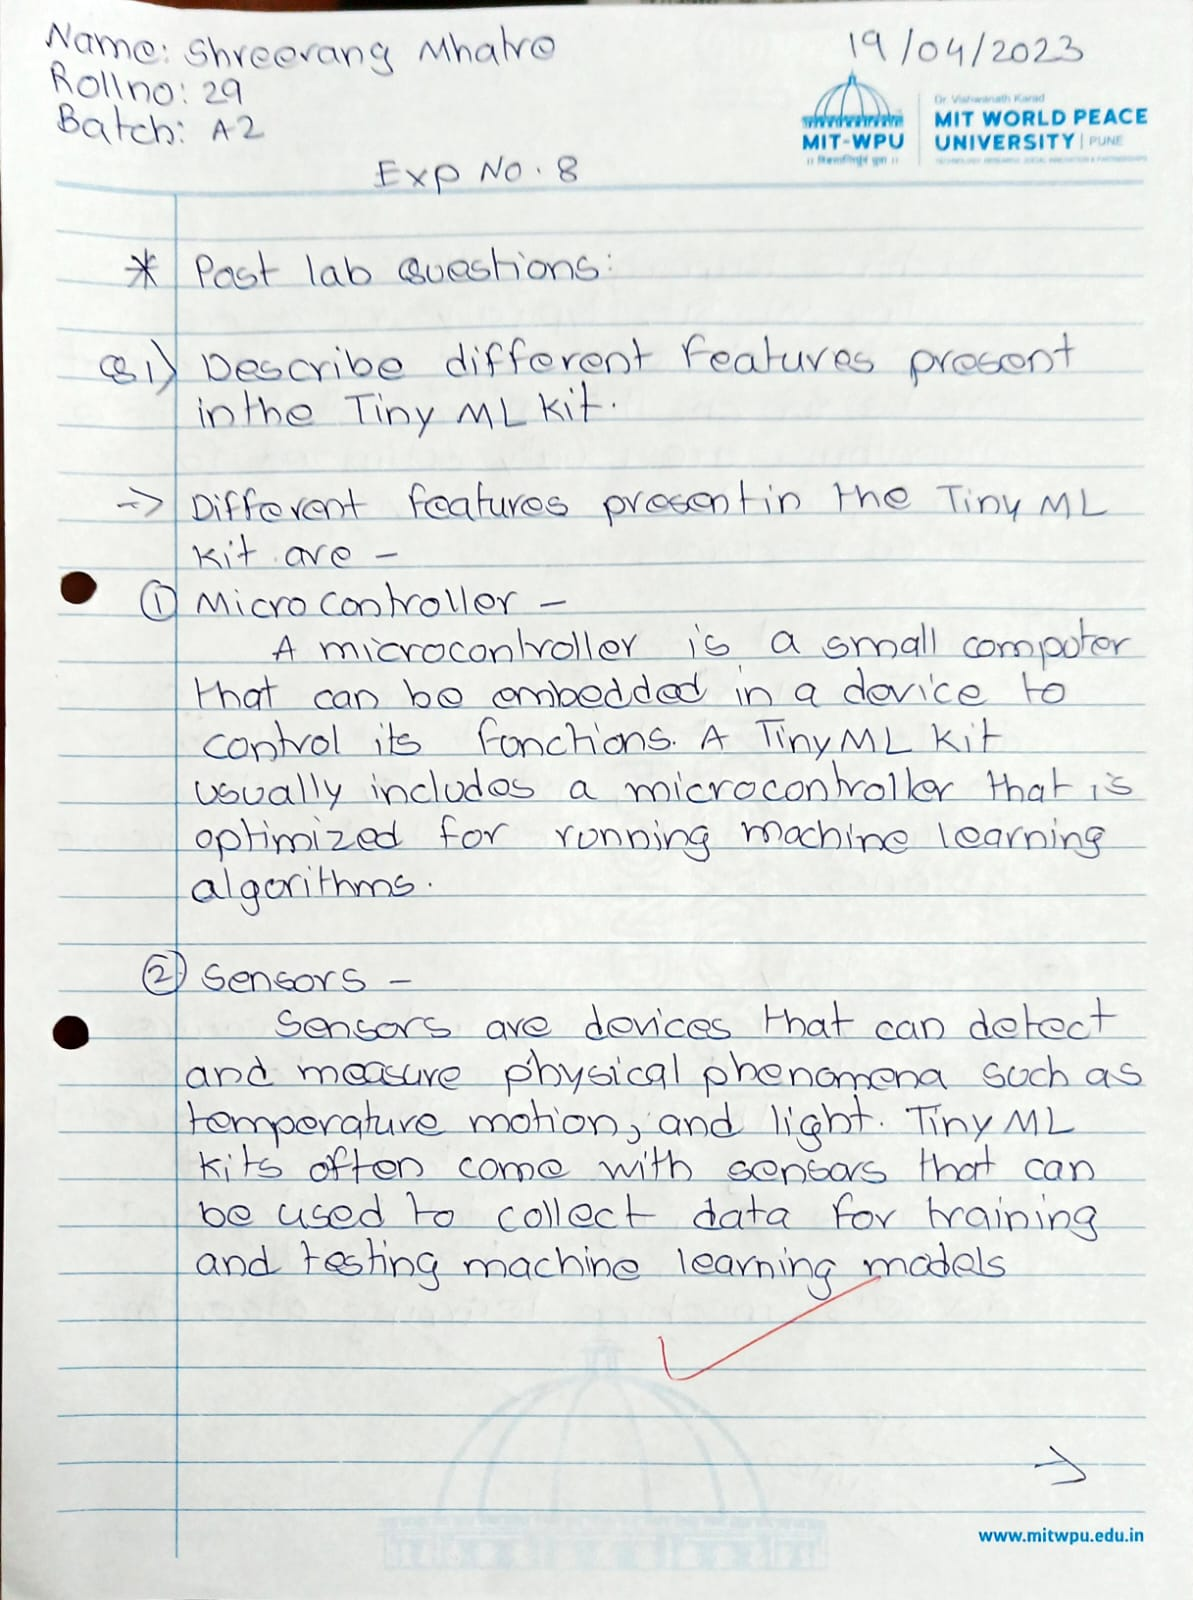 Name: Shreerang Mhatre
Rollno: 29
Batch: A2
19/04/2023
Dr. Vishwanath Karad
MIT WORLD PEACE
UNIVERSITY | PUNE
MIT-WPU
Exp No. 8
* Post lab Questions:
Q1) Describe different features present
in the Tiny ML kit.
-> Different features present in the Tiny ML
kit are -
① Microcontroller -
A microcontroller is a small computer
that can be embedded in a device to
control its functions. A Tiny ML kit
usually includes a microcontroller that is
optimized for running machine learning
algorithms.
② Sensors -
Sensors are devices that can detect
and measure physical phenomena such as
temperature motion, and light. Tiny ML
kits often come with sensors that can
be used to collect data for training
and testing machine learning models
->
www.mitwpu.edu.in